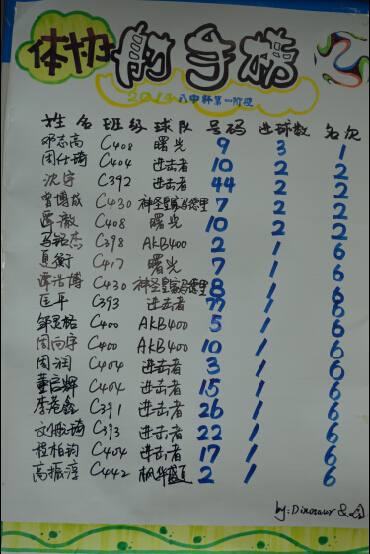 体协
射手榜
2014八中杯第一阶段
姓名 班级 球队 号码 进球数 名次
邓志高 C408 曙光 9 3 1
周仕琦 C404 进击者 10 2 2
沈宇 C392 进击者 44 2 2
曾博成 C430 神圣皇家马德里 7 2 2
谭澈 C408 曙光 10 2 2
马铭杰 C398 AKB400 2 1 6
C417 曙光 7 1 6
谭浩博 C430 神圣皇家马德里 8 1 6
匡平 C393 进击者 77 1 6
邹思格 C400 AKB400 5 1 6
周向宇 C400 AKB400 10 1 6
周润 C404 进击者 3 1 6
董启辉 C404 进击者 15 1 6
李若鑫 C391 进击者 26 1 6
刘 琦 C393 进击者 22 1 6
程柏钧 C404 进击者 17 1 6
高振淳 C442 枫华 2 1 6
by: Dinosaur &